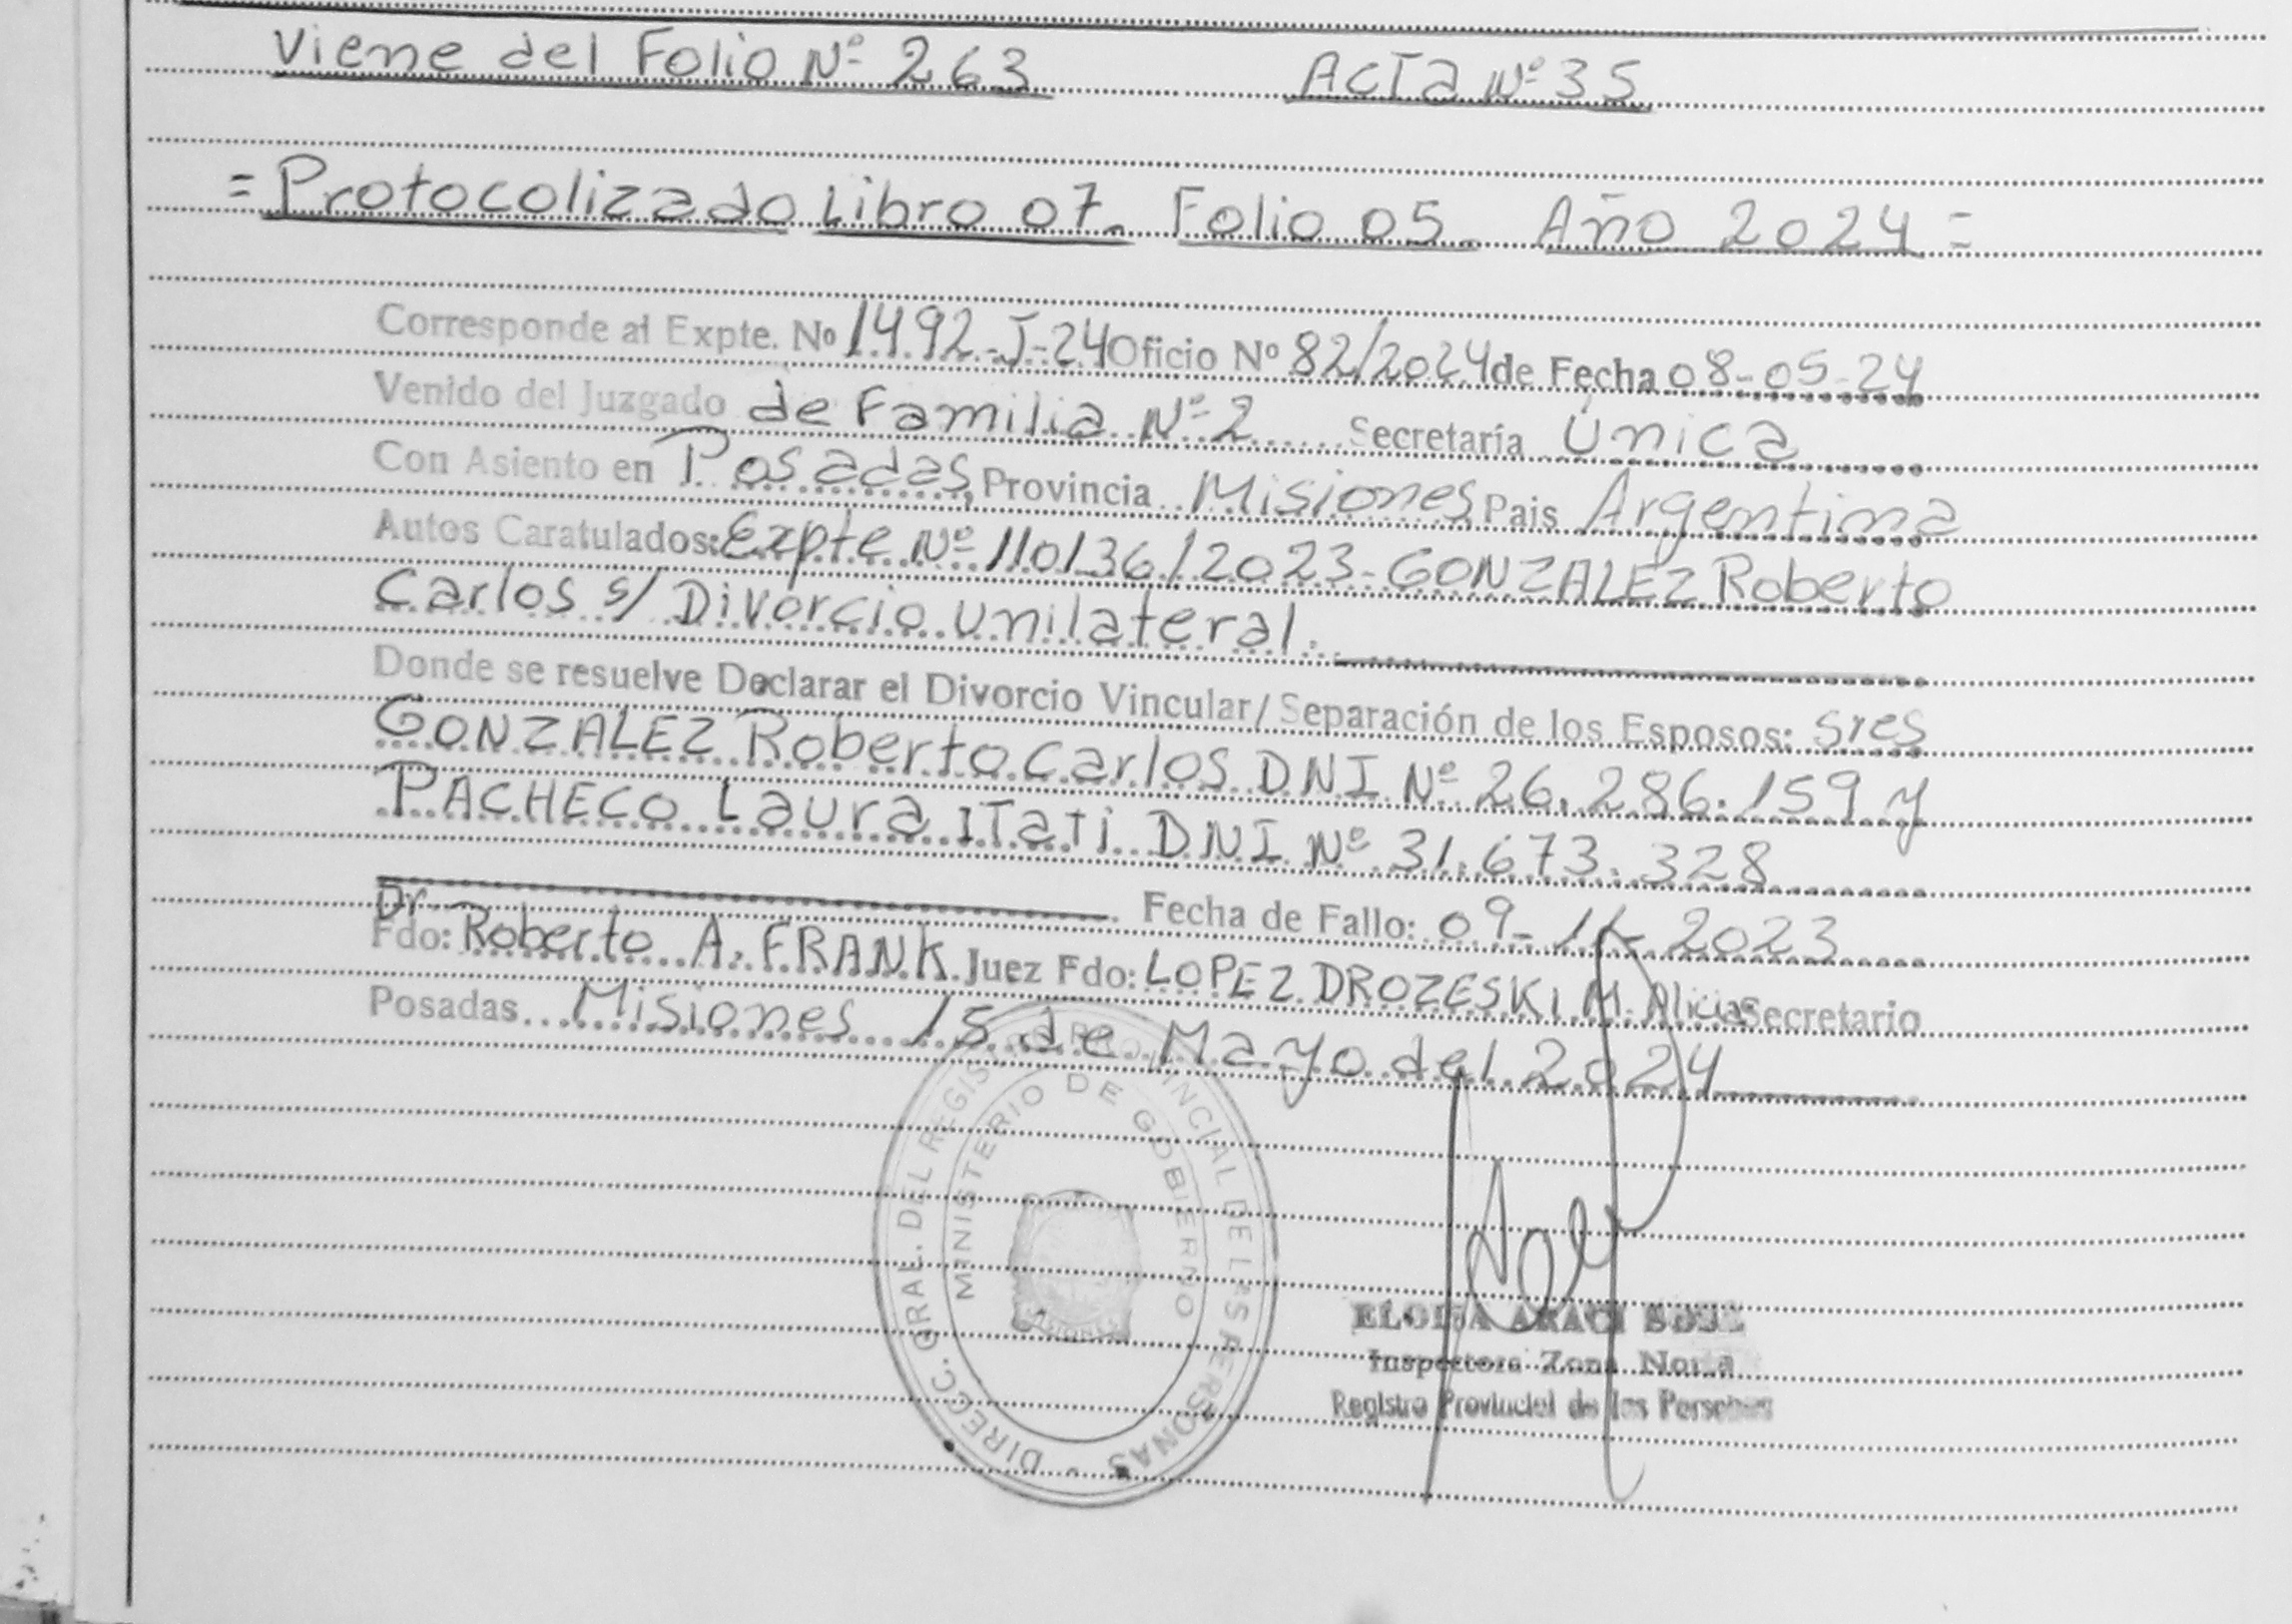 Viene del Folio Nº 263 Acta Nº 35
= Protocolizado Libro 07. Folio 05. Año 2024 =
Corresponde al Expte. Nº 1492-J-24 Oficio Nº 82/2024 de Fecha 08-05-24
Venido del Juzgado de Familia Nº 2 Secretaría Única
Con Asiento en Posadas, Provincia Misiones Pais Argentina
Autos Caratulados: Expte Nº 110136/2023- GONZALEZ Roberto
Carlos s/ Divorcio Unilateral.
Donde se resuelve Declarar el Divorcio Vincular/ Separación de los Esposos: sres
GONZALEZ Roberto Carlos DNI Nº 26.286.159 y
PACHECO Laura Itati DNI Nº 31.673.328
Fecha de Fallo: 09-11-2023
Dr
Fdo: Roberto A. FRANK Juez Fdo: LOPEZ DROZESKI M. Alicia Secretario
Posadas Misiones 15 de Mayo del 2024
DIRECC. GRAL. DEL REGISTRO PROVINCIAL DE LAS PERSONAS
MINISTERIO DE GOBIERNO
MISIONES
ELOISA ARACI
Inspectora Zona Norte
Registro Provincial de las Personas